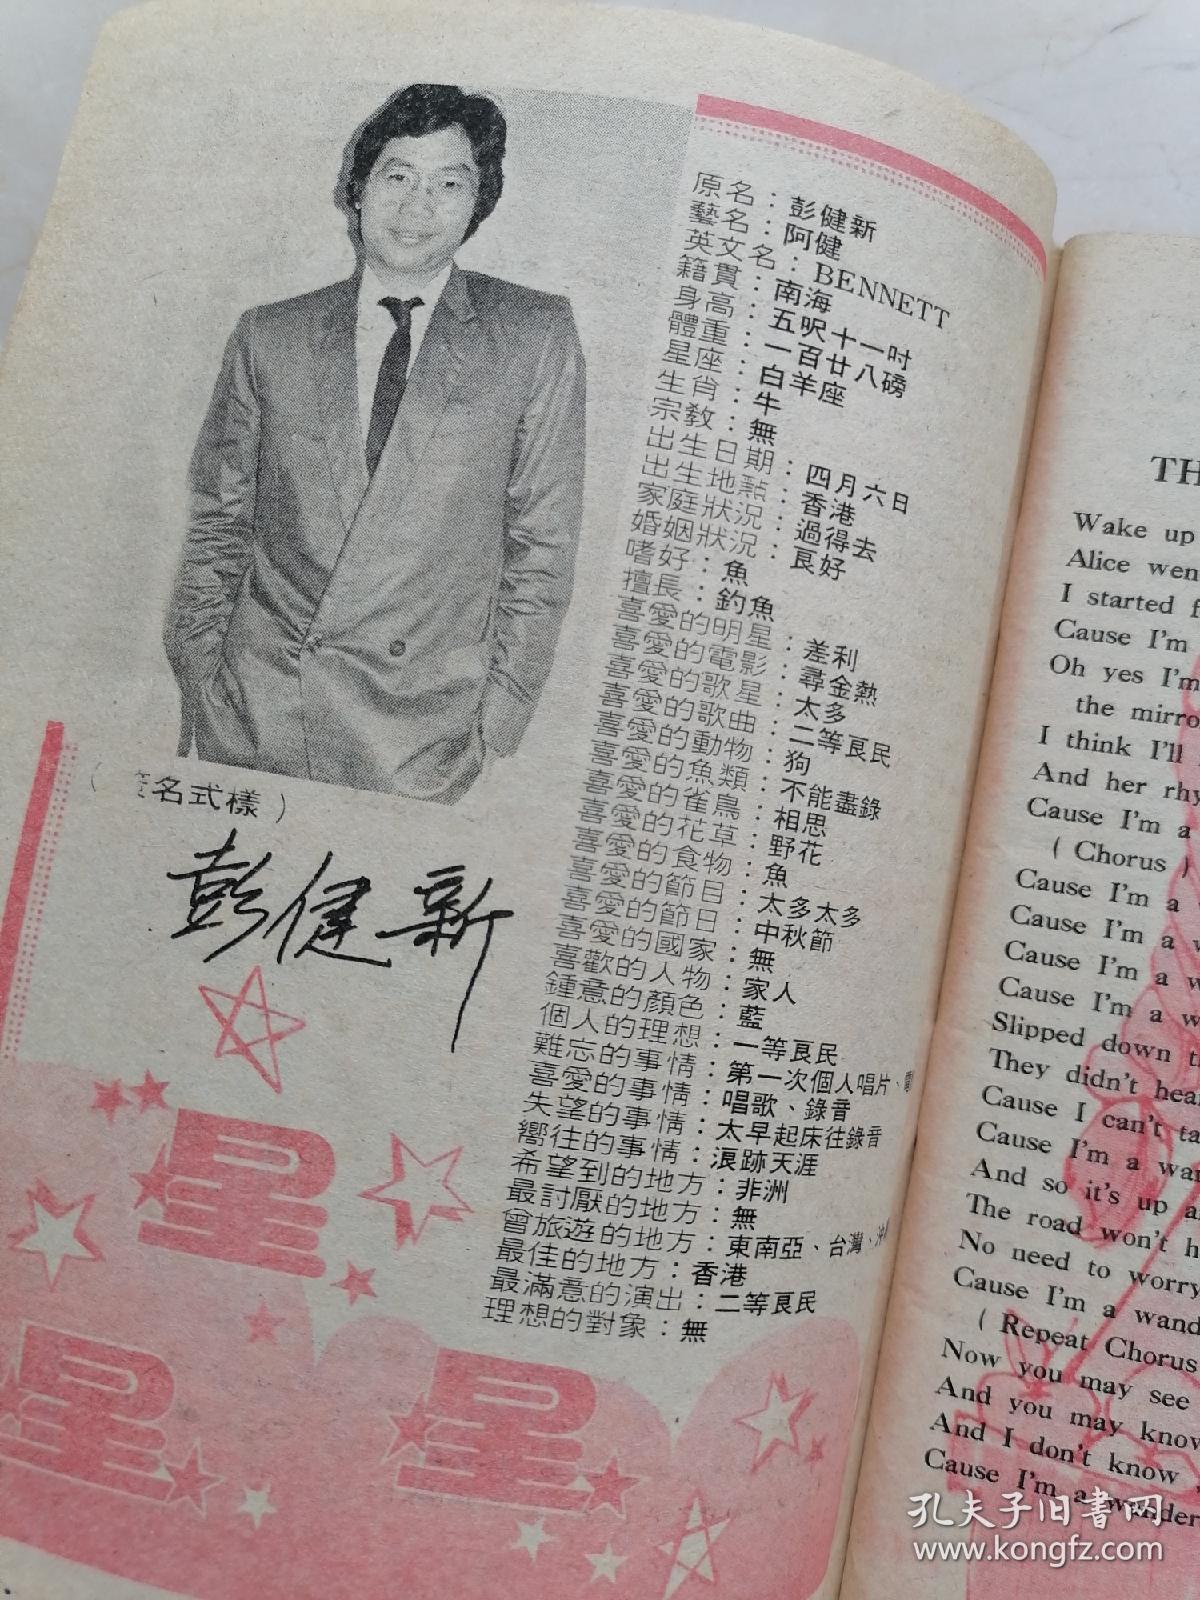 原名：彭健新
藝名：阿健
英文名：BENNETT
籍貫：南海
身高：五呎十一吋
體重：一百廿八磅
星座：白羊座
生肖：牛
宗教：無
出生日期：四月六日
出生地點：香港
家庭狀況：過得去
婚姻狀況：良好
嗜好：魚
擅長：釣魚
喜愛的明星：差利
喜愛的電影：尋金熱
喜愛的歌星：太多
喜愛的歌曲：二等良民
喜愛的動物：狗
喜愛的魚類：不能盡錄
喜愛的雀鳥：相思
喜愛的花草：野花
喜愛的食物：魚
喜愛的節目：太多太多
喜愛的節日：中秋節
喜愛的國家：無
喜歡的人物：家人
鍾意的顏色：藍
個人的理想：一等良民
難忘的事情：第一次個人唱片、
喜愛的事情：唱歌、錄音
失望的事情：太早起床往錄音
嚮往的事情：浪跡天涯
希望到的地方：非洲
最討厭的地方：無
曾旅遊的地方：東南亞、台灣、
最佳的地方：香港
最滿意的演出：二等良民
理想的對象：無
名式樣）
彭健新
星
星
星
TH
Wake up
Alice wen
I started f
Cause I'm
Oh yes I'm
the mirro
I think I'll
And her rhy
Cause I'm a
( Chorus )
Cause I'm a
Cause I'm a w
Cause I'm a w
Cause I'm a w
Slipped down t
They didn't hea
Cause I can't ta
Cause I'm a wa
And so it's up a
The road won't h
No need to worry
Cause I'm a wand
( Repeat Chorus
Now you may see
And you may know
And I don't know
Cause I'm a wander
孔夫子旧书网
www.kongfz.com